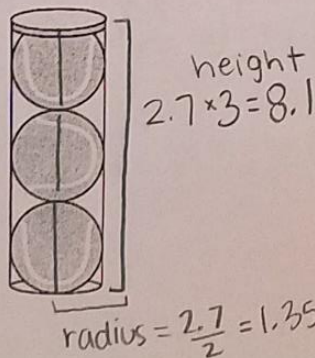 height
2.7×3=8.1
radius = 2.7/2 = 1.35